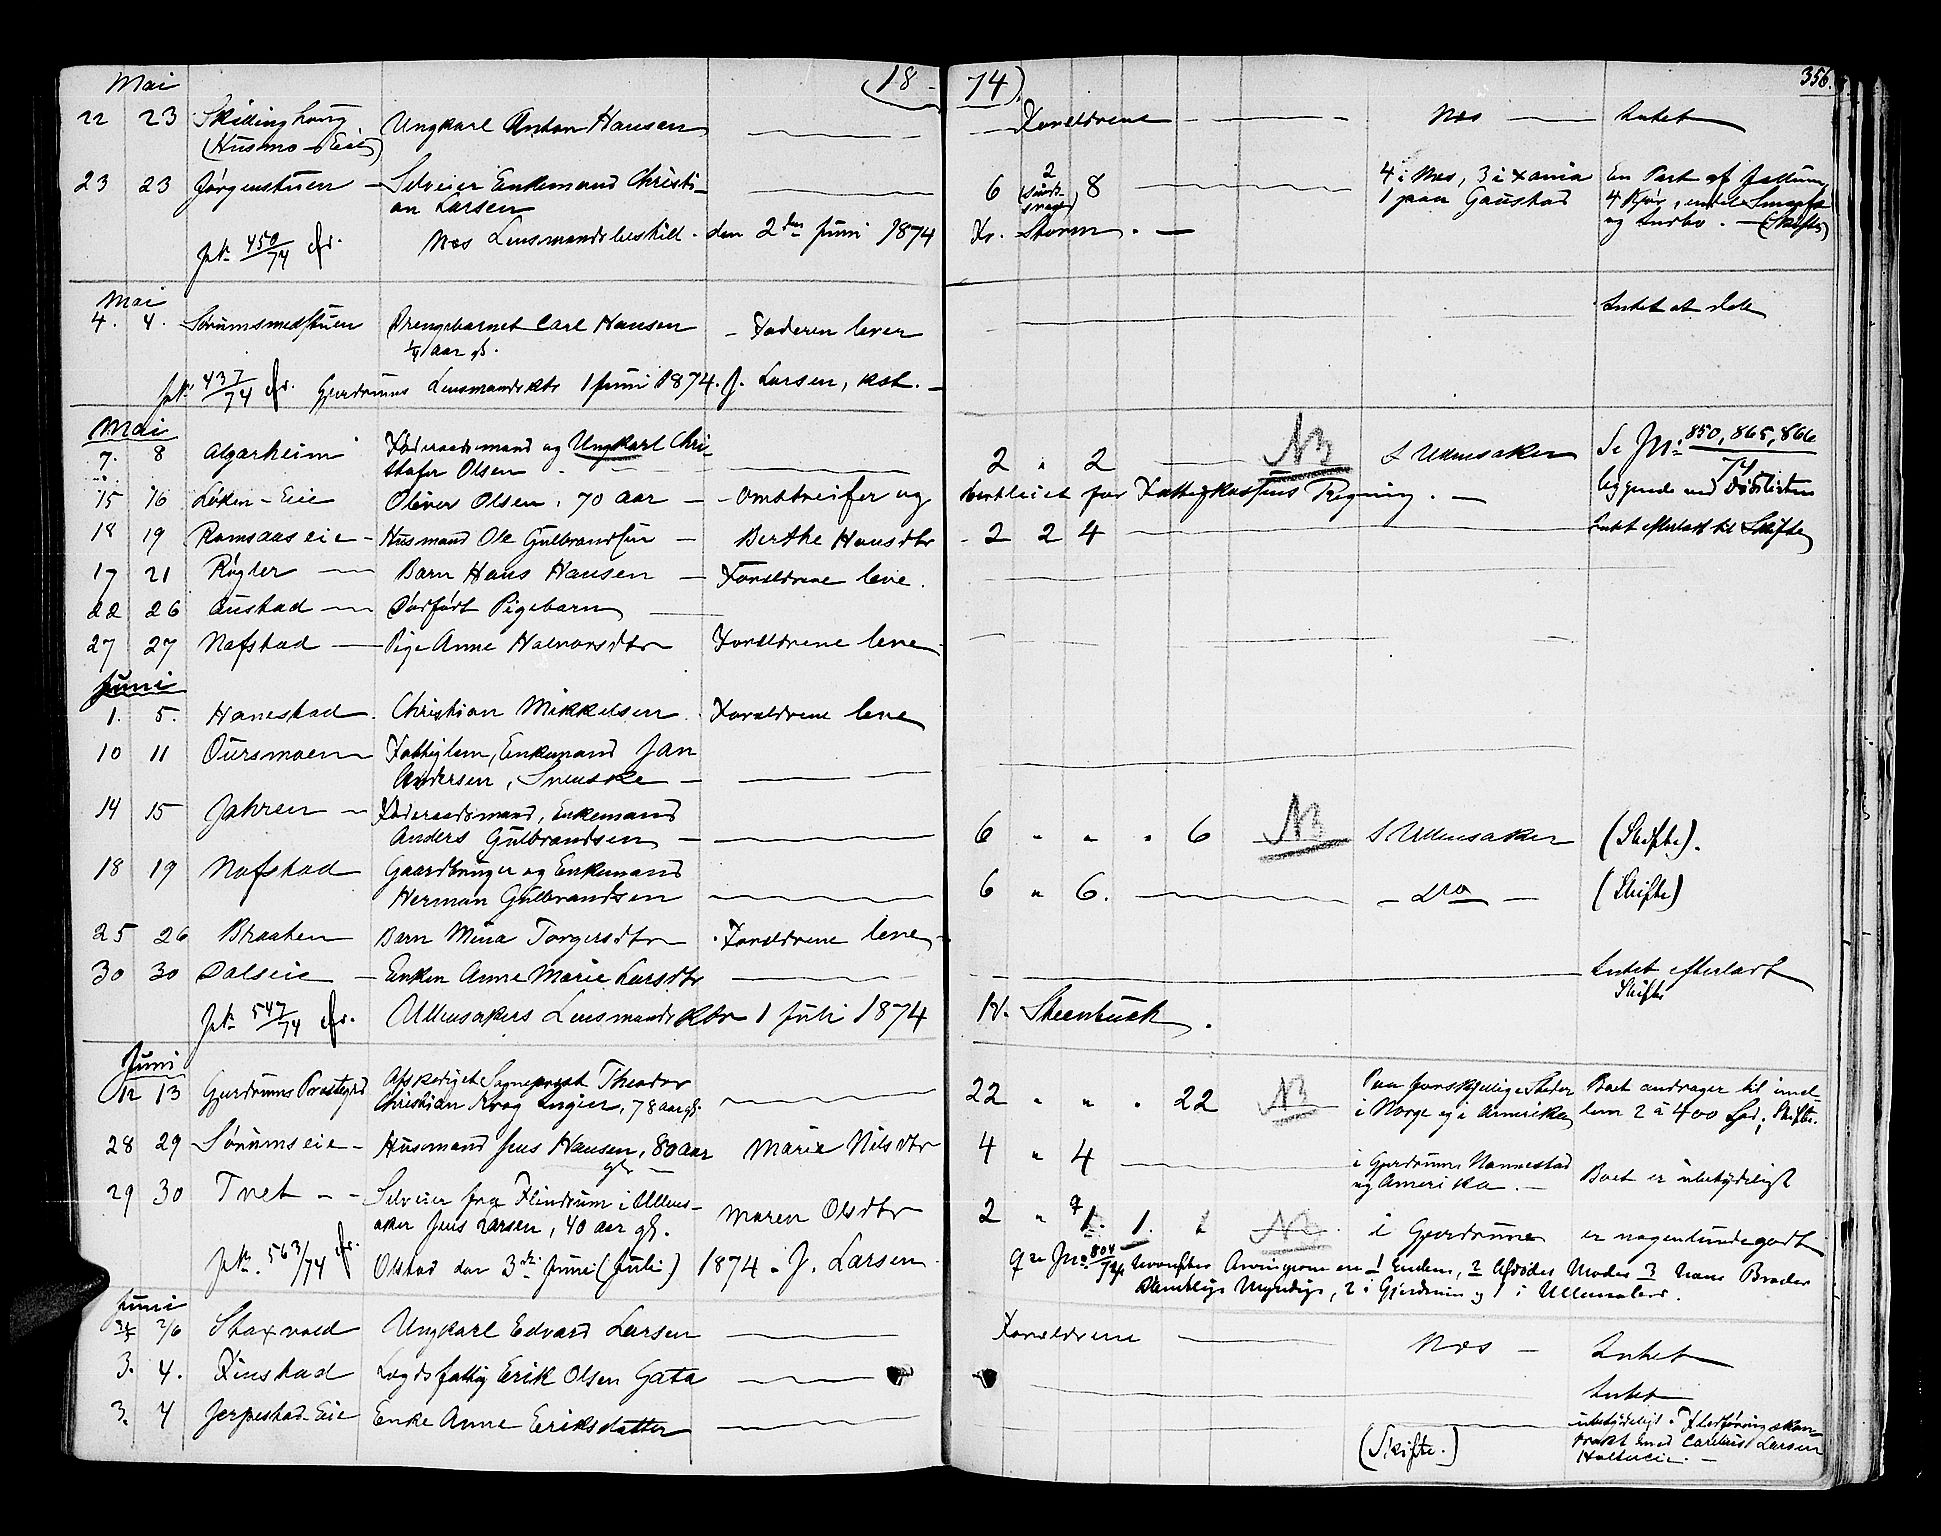 Mai (18 - 74). 356.
22 23 Skillinghaug Ungkarl Anton Hansen Forældrene Næs Intet
(Husmo-Eie)
23 23 Jørgenstuen - Selveier Enkemand Christi- 6 2 8 4 i Næs, 3 i Xania En Part af
an Larsen 1 paa Gaustad 4 Kjør,
og Indbo. - (Skifte)
Jn: 450/74 Næs Lensmandsbestill. den 2den Juni 1874 Fr. Storm. -
Mai
4. 4. Sørumsmedstuen Drengebarnet Carl Hansen - Faderen lever Intet at dele
1/4 aar gl.
Jn: 437/74 Gjerdrums Lensmandsktr 1 Juni 1874. J. Larsen, kst. -
Mai
7. 8 Algarheim Føderaadsmand og Ungkarl Chri- 2 " 2 NB I Ullensaker Se Jn: 850, 865, 866
stofer Olsen - 74
15 16 Løken-Eie Oliver Olsen, 70 aar - - Omstreifer og bortleiet for Fattigkassens Regning. - liggende ved Dødslisten
18 19 Ramsaaseie - Husmand Ole Gulbrandsen - Berthe Hansdtr - 2 2 4 Intet efterladt til Skifte
17 21 Røgler Barn Hans Hansen - Forældrene leve.
22 26 Austad Dødfødt Pigebarn
27 27 Nafstad Pige Anne Halvorsdtr Forældrene leve
Juni
1. 5. Hanestad. Christian Mikkelsen. Forældrene leve
10 11 Oursmoen Fattiglem, Enkemand Jan
Andersen, Svenske -
14 15 Jahren - Føderaadsmand, Enkemand
Anders Gulbrandsen 6 " " " 6 NB I Ullensaker (Skifte).
18 19 Nafstad Gaardbruger og Enkemand
Herman Gulbrandsen 6 " 6. - Do - (Skifte)
25 26 Braaten Barn Mina Torgersdtr Forældrene leve
30 30 Dalseie - Enken Anne Marie Larsdtr Intet efterladt
Skifte
Jn: 547/74 Ullensakers Lensmandsktr 1 Juli 1874 N. Steenbuch.
Juni
12 13 Gjerdrums Præstegrd Afskediget Sogneprest Theodor 22 " " " 22 NB Paa forskjellige Steder Boet andrager til imel-
Christian Krog Engier, 78 aar gl. i Norge og i Amerika lem 2 à 400 Spd; Skifte.
28 29 Sørumseie - Husmand Jens Hansen, 80 aar Marie Nilsdtr 4 " 4 i Gjerdrum Nannestad
gl. - og Amerika. - Boet er ubetydeligt
29 30 Tvet - - Selveier fra Flindrum i Ullens- Maren Olsdtr 2 " 1. 1. NB. i Gjerdrum er nogenlunde godt
aker Jens Larsen, 40 aar gl.
Jn: 563/74 Olstad den 3die Juni (Juli) 1874. J. Larsen. Jn: 804/74 Arvingerne ere 1 Enken, 2 Afdødes Moder 3 hans Broder
Myndige, 2 i Gjerdrum og 1 i Ullensaker.
Juni
2/6 Staxvold Ungkarl Edvard Larsen Forældrene Næs - Intet
3. 4. Finstad Lægdsfattig Erik Olsen Gata Intet
3. 4 Jerpestad-Eie Enke Anne Eriksdatter (Skifte.) ubetydeligt.
trakt med Carelius Larsen
Holtereie. -